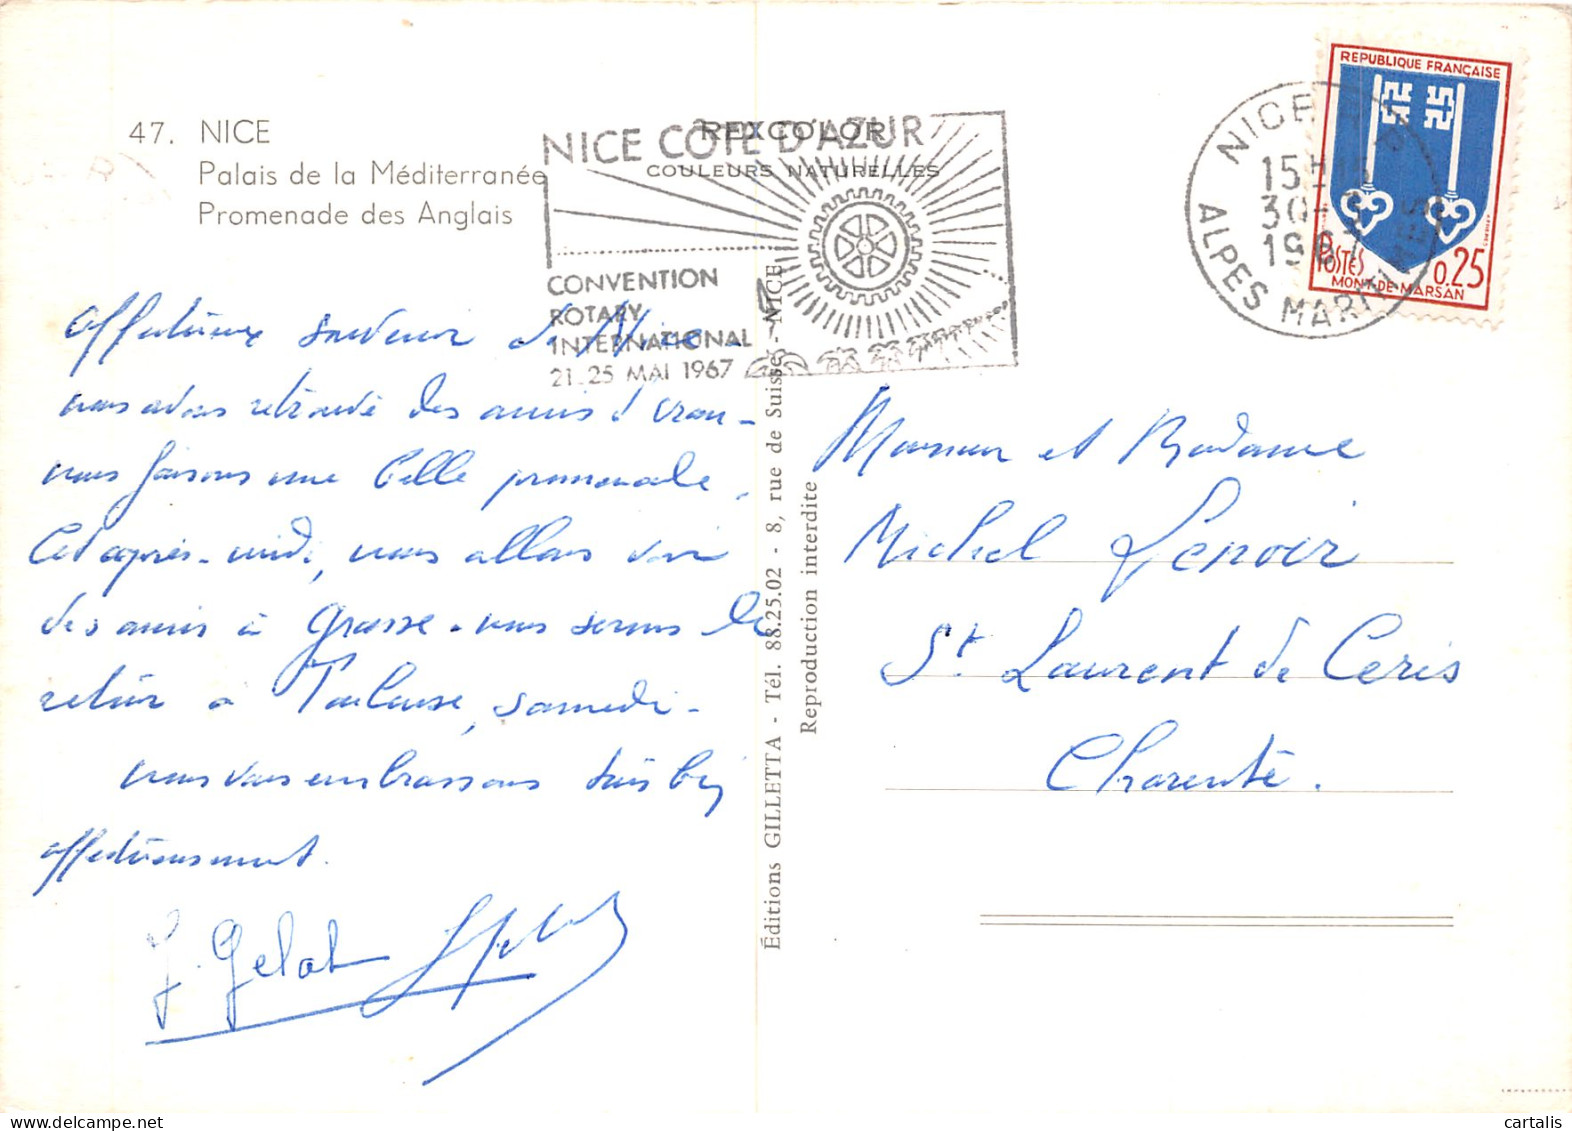 47. NICE
Palais de la Méditerranée
Promenade des Anglais
REXCOLOR
COULEURS NATURELLES
NICE CÔTE D'AZUR
CONVENTION
ROTARY
INTERNATIONAL
21_25 MAI 1967
NICE
15H15
30-
1967
ALPES MARITIMES
REPUBLIQUE FRANÇAISE
POSTES
0,25
MONT-DE-MARSAN
affectueux souvenir de Nice -
nous avons retrouvé des amis d'
nous faisons une belle promenade.
Cet après-midi, nous allons voir
des amis à Grasse - nous serons de
retour à Toulouse, samedi -
nous vous embrassons
affectueusement.
J. Gelot
Éditions GILLETTA - Tél. 88.25.02 - 8, rue de Suisse - NICE
Reproduction interdite
Monsieur et Madame
Michel Lenoir
St Laurent de Ceris
Charente.
cartalis